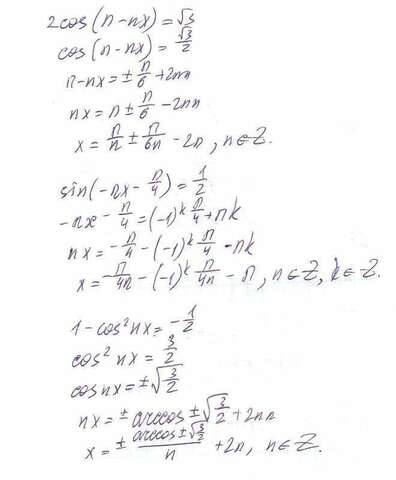 2cos(π-nx)=√3
cos(π-nx)=√3/2
π-nx=±π/6+2πn
nx=π±π/6-2πn
x=π/n±π/6n-2π, n∈Z.
sin(-nx-π/4)=1/2
-nx-π/4=(-1)^k π/4+πk
nx=-π/4-(-1)^k π/4-πk
x=-π/4n-(-1)^k π/4n-π, n∈Z, k∈Z.
1-cos²nx=-1/2
cos²nx=3/2
cosnx=±√3/2
nx=±arccos±√3/2+2πn
x=±arccos±√3/2/n+2π, n∈Z.